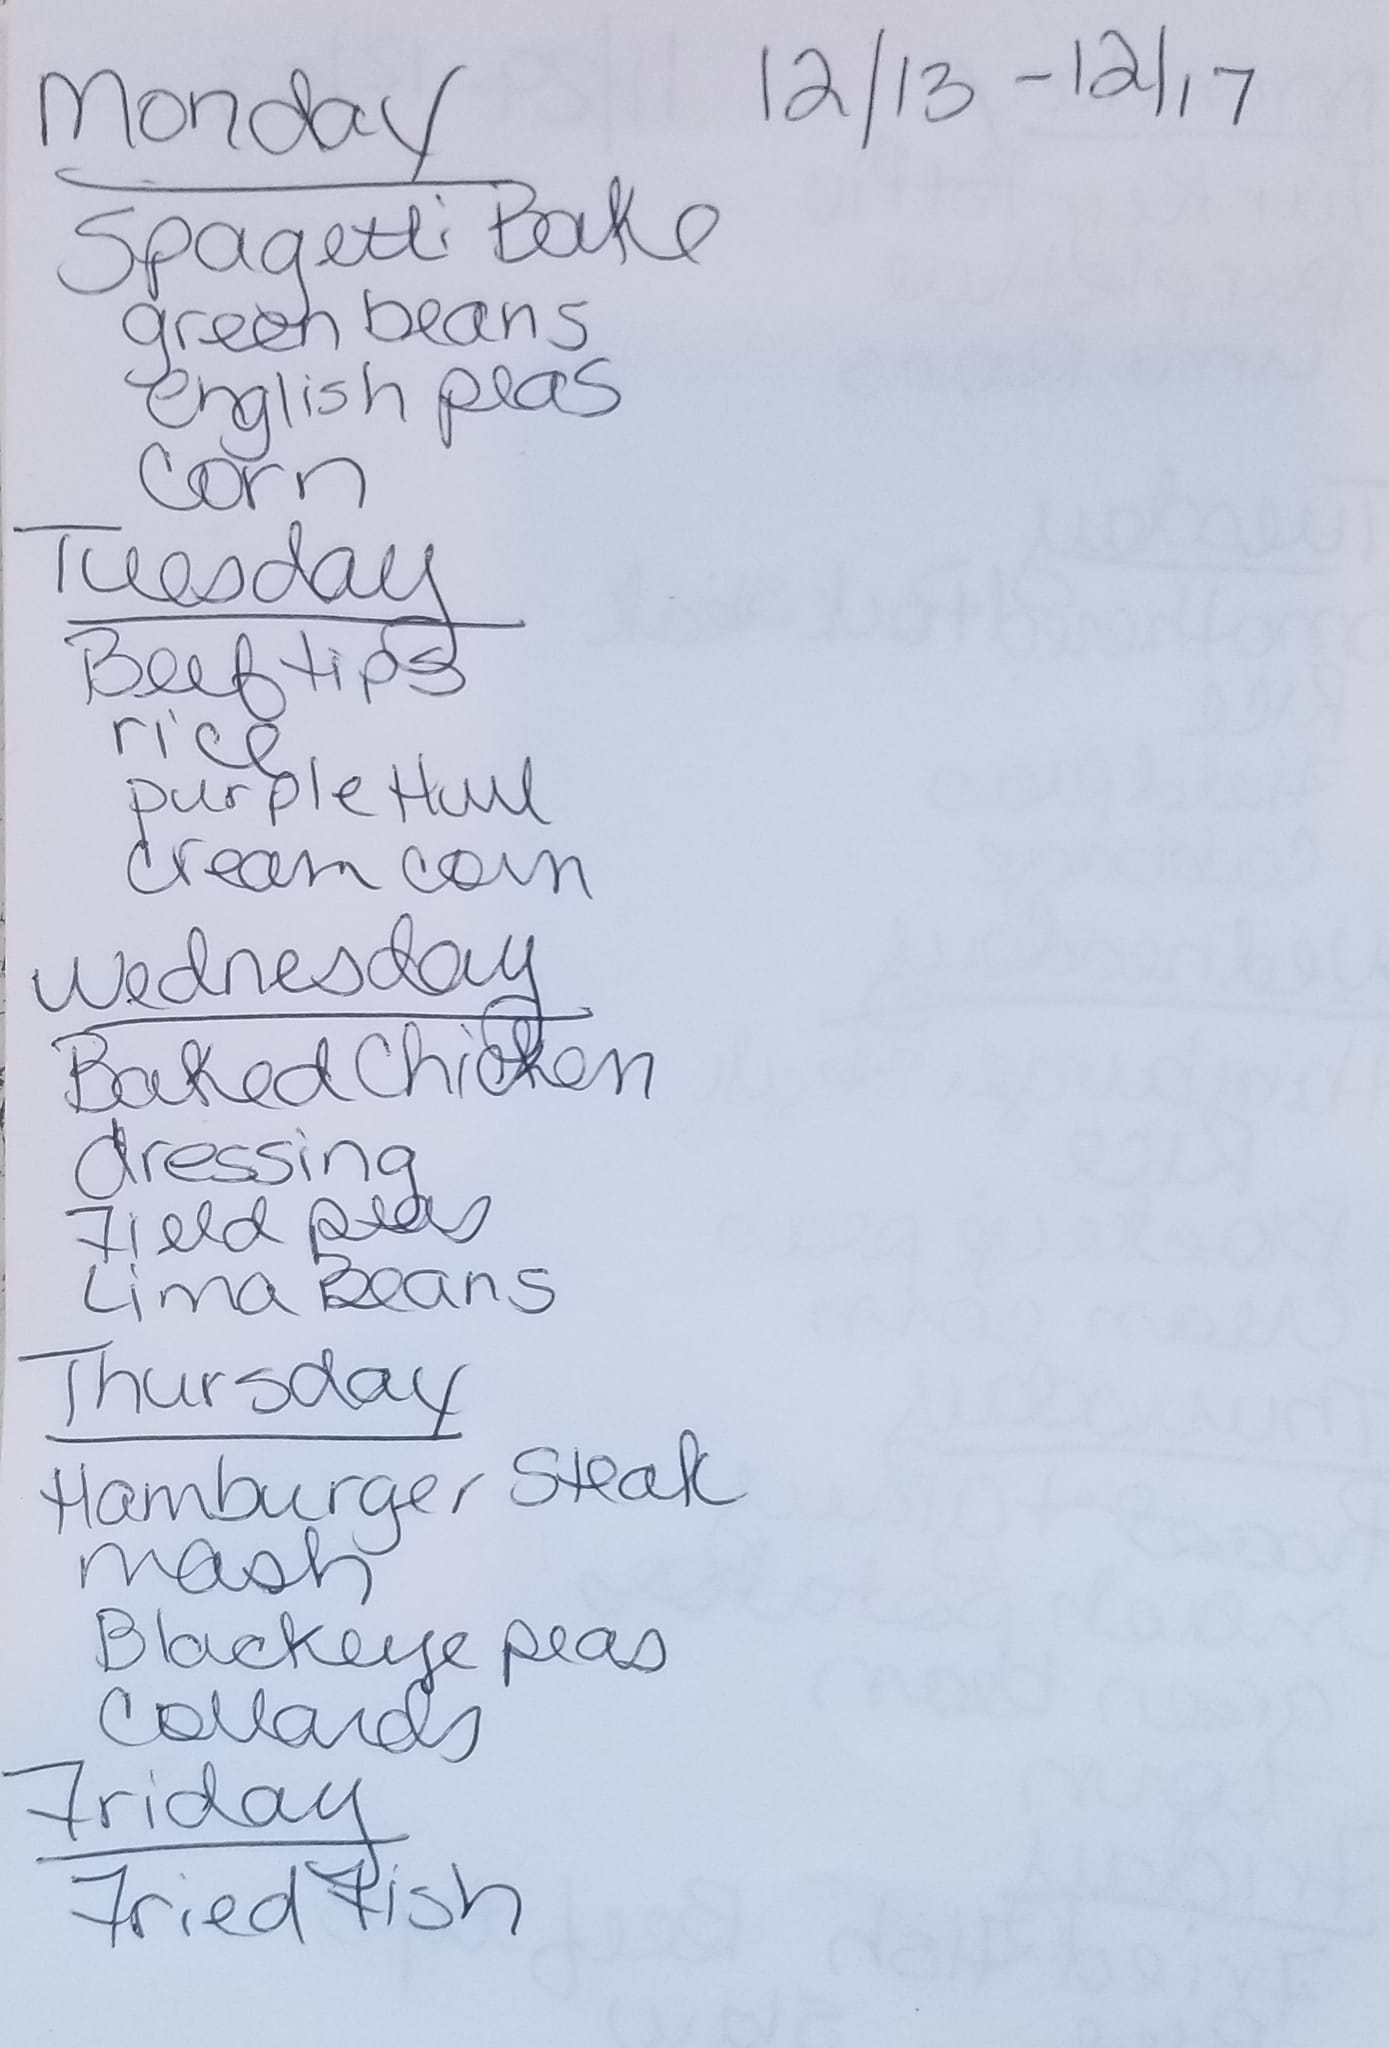 Monday 12/13 - 12/17
Spagetti Bake
green beans
english peas
Corn
Tuesday
Beef tips
rice
purple Hull
cream corn
Wednesday
Baked Chicken
dressing
Field peas
Lima Beans
Thursday
Hamburger Steak
mash
Blackeye peas
Collards
Friday
Fried Fish